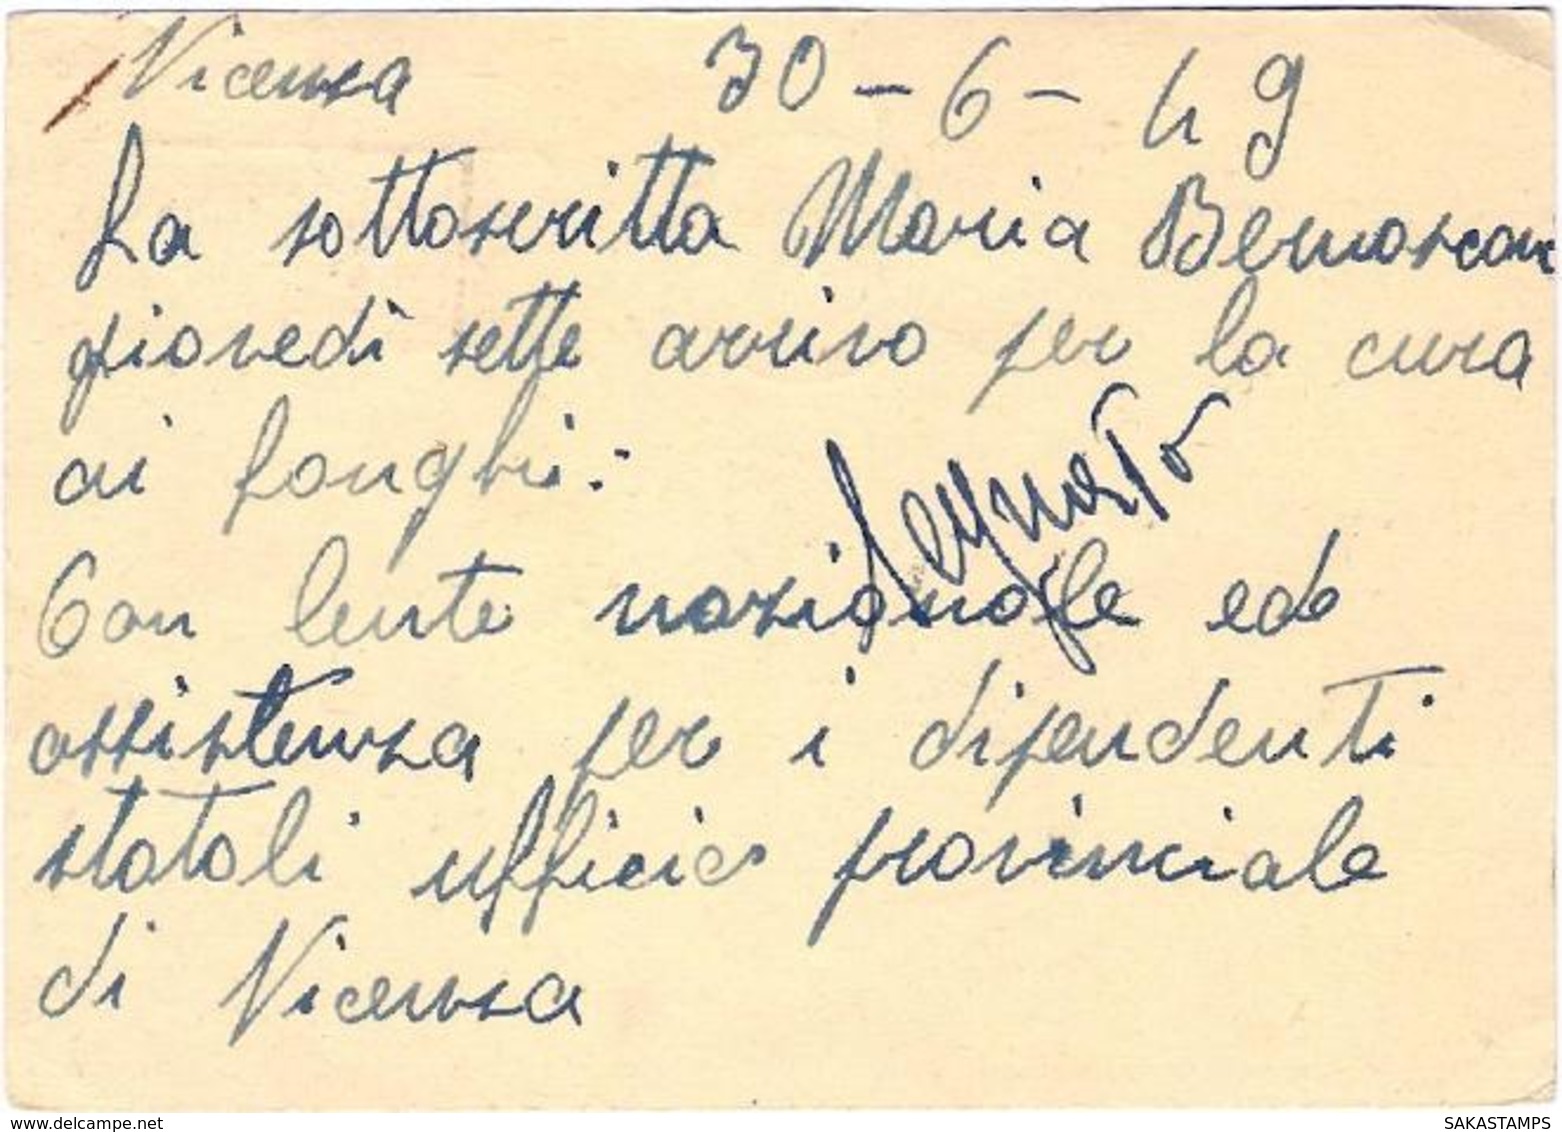 Vicenza 30-6-49
La sottoscritta Maria Bernascon
giovedì sette arrivo per la cura
ai fonghi:
Segnato
Con lente nazionale ede
assistenza per i dipendenti
statali ufficio provinciale
di Vicenza
www.delcampe.net
SAKASTAMPS